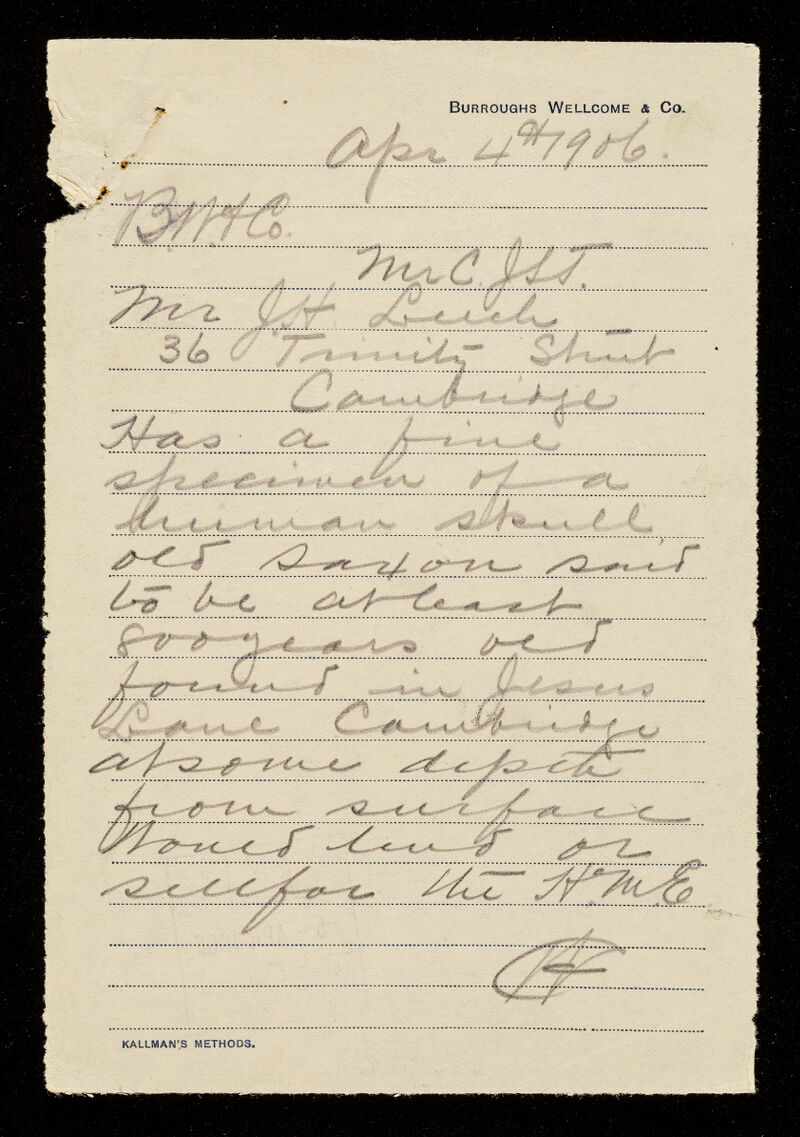 BURROUGHS WELLCOME & CO.
Apr 4th 1906.
B.W.& Co.
Mr C.J.S.T.
Mr J.H. Leech
36 Trinity Street
Cambridge
Has a fine
specimen of a
human skull
old saxon said
to be at least
800 years old
found in Jesus
Lane Cambridge
at some depth
from surface
Would lend or
sell for the H.M.E
KALLMAN'S METHODS.